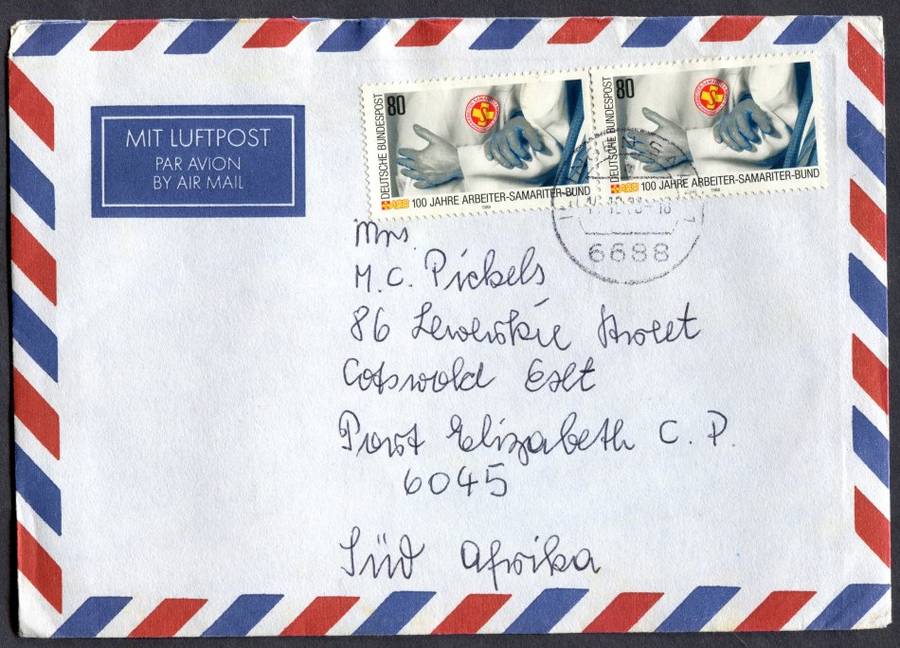 MIT LUFTPOST
PAR AVION
BY AIR MAIL
DEUTSCHE BUNDESPOST
80
ASB 100 JAHRE ARBEITER-SAMARITER-BUND
1988
DEUTSCHE BUNDESPOST
80
ASB 100 JAHRE ARBEITER-SAMARITER-BUND
1988
6688
Mrs.
M.C. Pickels
86 Street
Cotswold Eslt
Port Elizabeth C. P.
6045
Süd Afrika